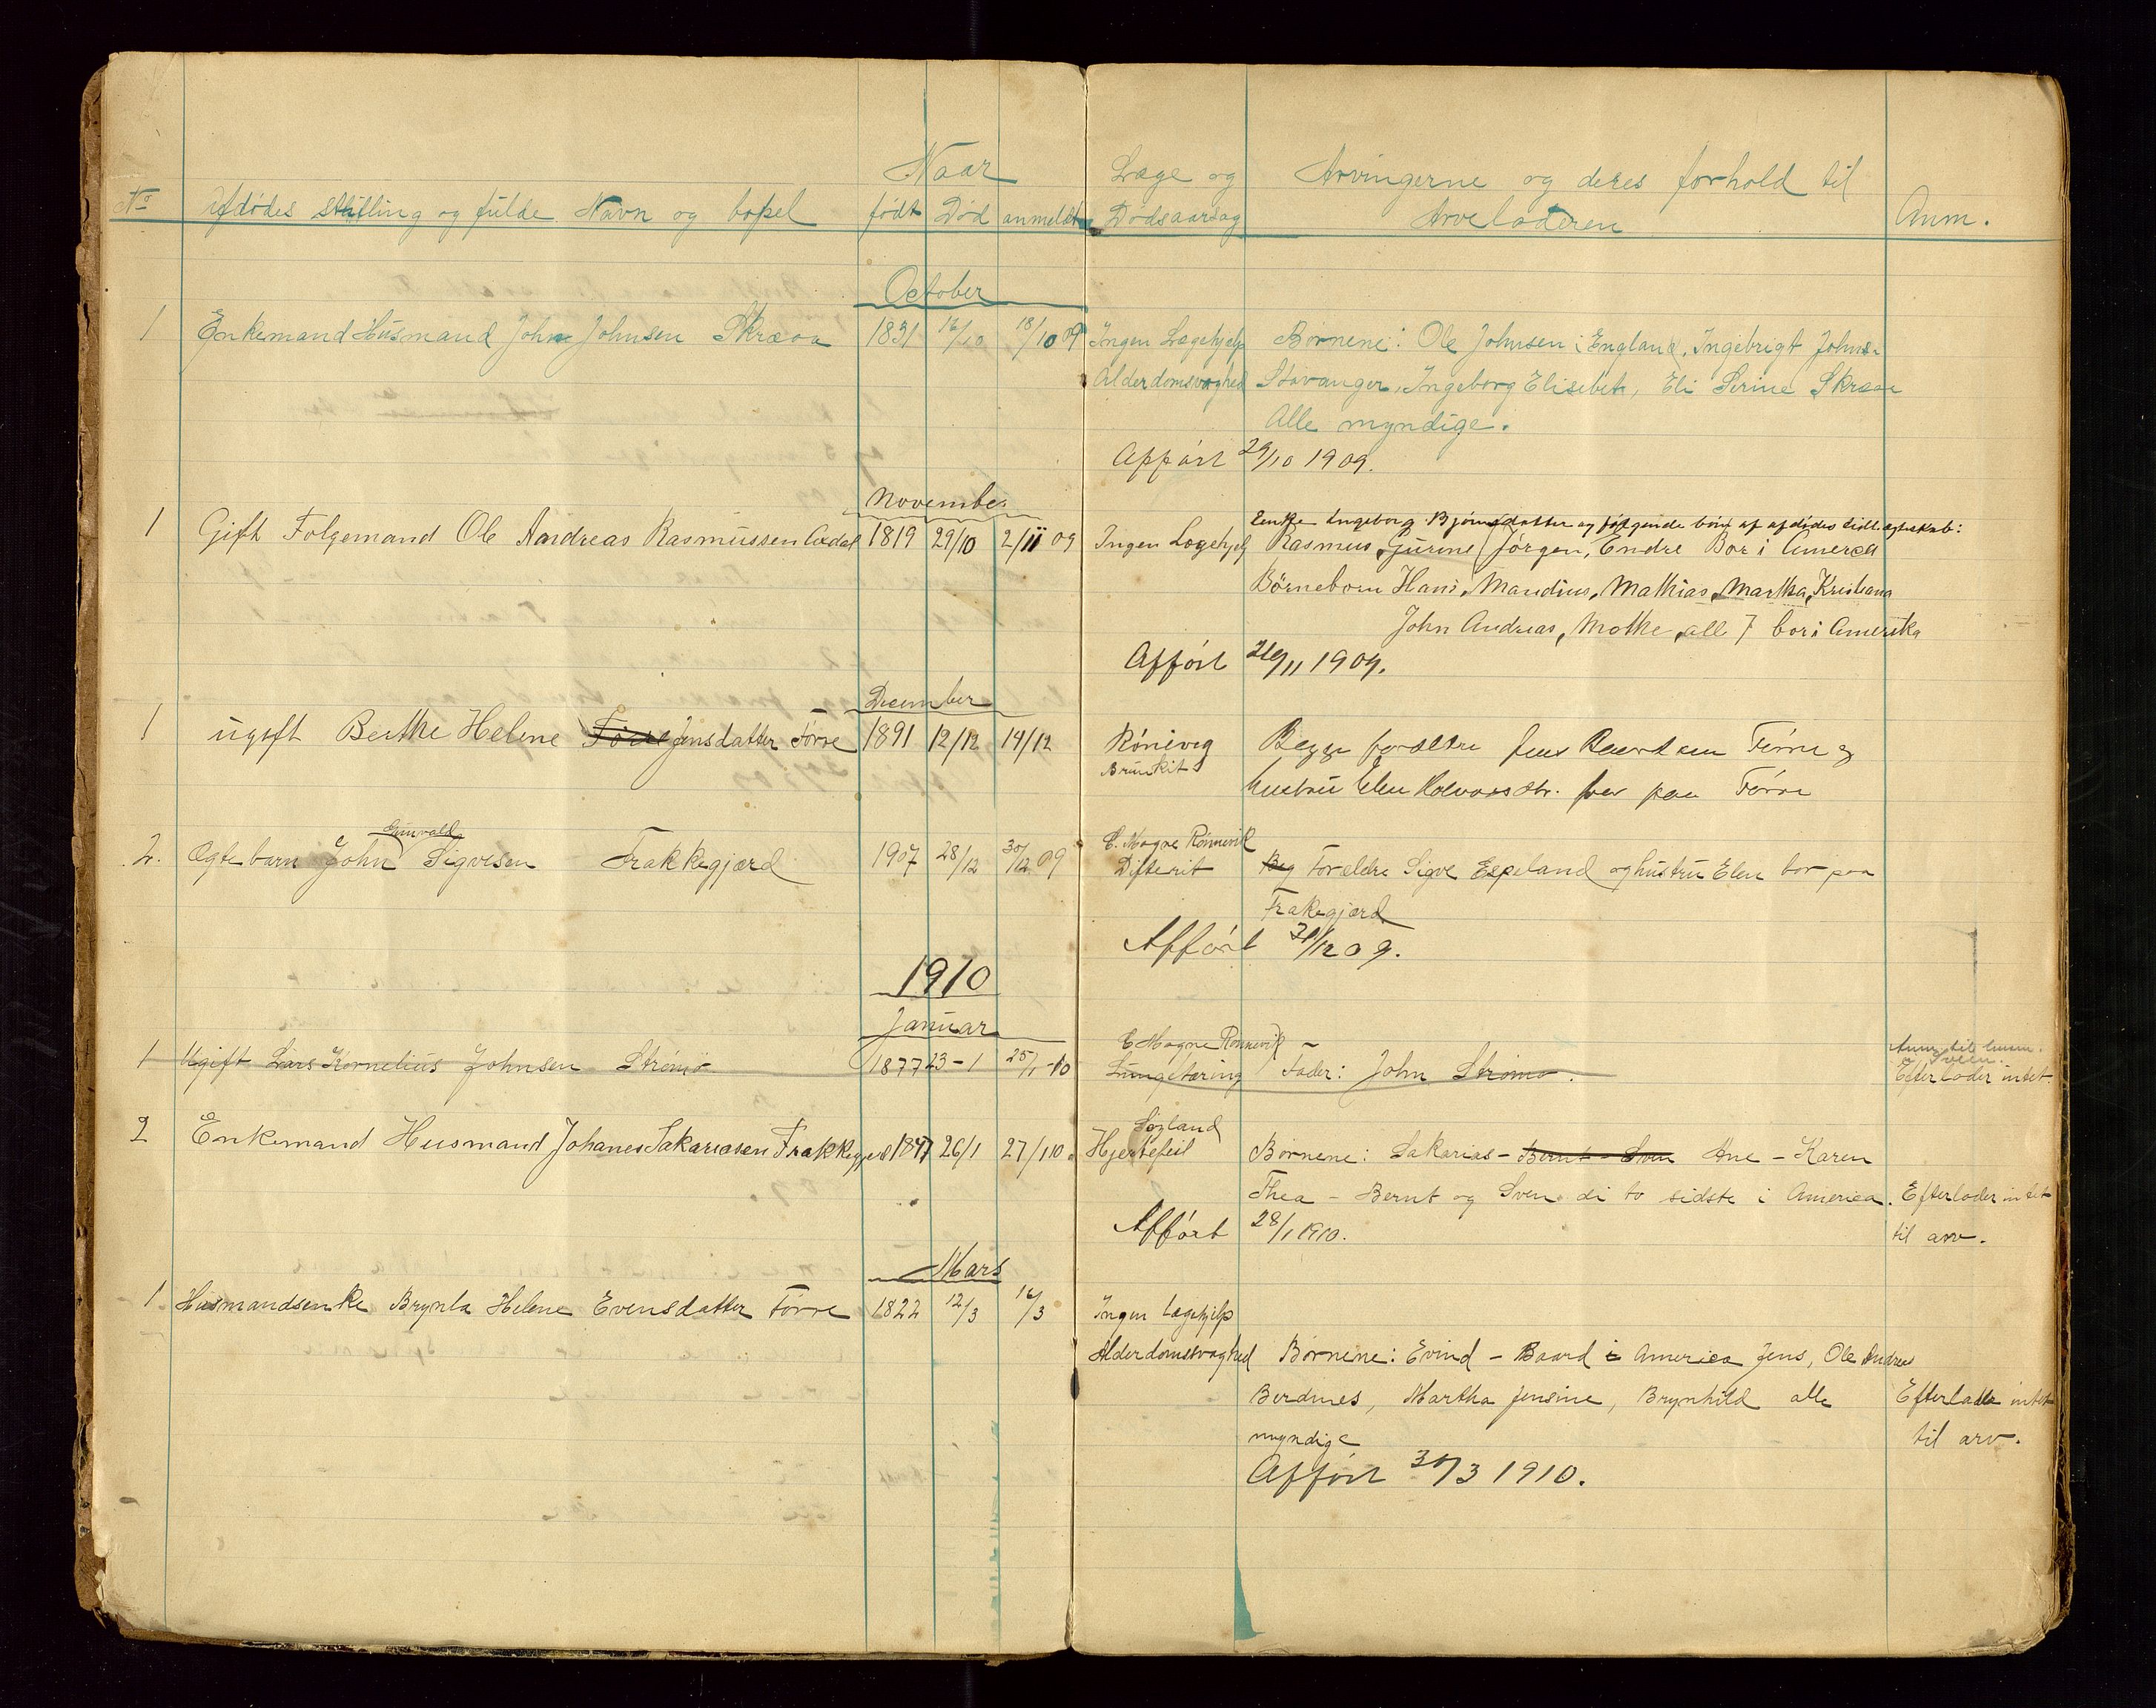 Naar
Læge og Arvingerne og deres forhold til
No Afdødes stilling og fulde Navn og bopel født Død anmeldt Dødsaarsag Arveladeren Anm.
October
1 Enkemand Husmand John Johnsen Skræoa 1831 16/10 18/10 09 Ingen Lægehjelp Børnene: Ole Johnsen i England, Ingebrigt Johns.
Alderdomsvaghed Stavanger, Ingeborg Elisebet, Eli Serine Skraar
Alle myndige.
Afført 29/10 1909.
November
Enke Ingeborg Bjørnsdatter og følgende børn af afdødes tidl. egteskab:
1 Gift Folgemand Ole Andreas Rasmussen 1819 29/10 2/11 09 Ingen Lægehjelp Rasmus, Gurine, Jørgen, Endre Bor i America
Børneborn Hans, Mandius, Mathias, Martha, Kristiana
John Andreas, Mothe, all 7 bor i Amerika
Afført 26/11 1909.
December
1 ugift Berthe Helene Førre Jensdatter Førre 1891 12/12 14/12 Rønevig Begge forældre Jens Førre og
Brunkit hustru Elen bor paa Førre
Grunvald
2. Ægte barn John Sigvesen Frakkegjærd 1907 28/12 30/12 09 E. Magne Rønnevik
Difterit Beg Forældre Sigve Espeland og hustru Elen bor paa
Frakegjærd
Afført 31/12 09.
1910
Januar
E Magne Rønnevik Anm. til
1 Ugift Lars Kornelius Johnsen Strømø 1877 23-1 25/1-10 Lungetæring Fader: John Strømø. Efterlader intet.
Søgland
2 Enkemand Husmand Johanes Sakariasen Frakkegjerd 1847 26/1 27/1 10. Hjertefeil Børnene: Sakarias - Bernt - Sven Ane - Karen
Thea - Bernt og Sven di to sidste i America. Efterlader intet
Afført 28/1 1910. til arv.
Mars
1 Husmandsenke Brynla Helene Evensdatter Førre 1822 12/3 16/3 Ingen Lægehjelp
Alderdomssvaghed Børnene: Evind - Baard i America Jens, Ole Andreas
Berdines, Martha Jensine, Brynhild alle Efterlader intet
myndige til arv.
Afført 30/3 1910.